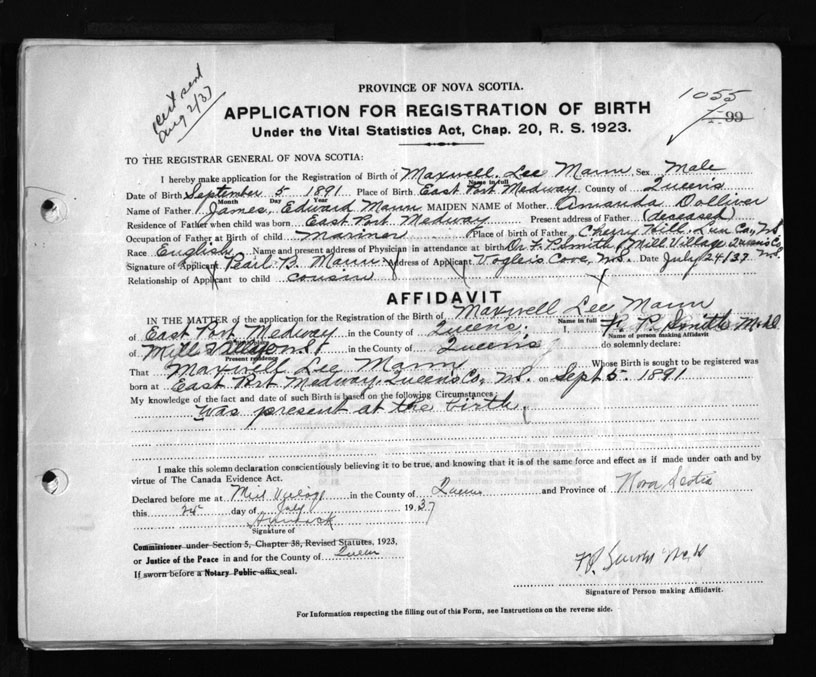 cert sent
Aug 2/37
PROVINCE OF NOVA SCOTIA.
1055
99
APPLICATION FOR REGISTRATION OF BIRTH
Under the Vital Statistics Act, Chap. 20, R. S. 1923.
TO THE REGISTRAR GENERAL OF NOVA SCOTIA:
I hereby make application for the Registration of Birth of Maxwell Lee Mann Sex Male
Name in full
Date of Birth September 5 1891 Place of Birth East Port Medway County of Queens
Month Day Year
Name of Father James Edward Mann MAIDEN NAME of Mother Amanda Dolliver
Residence of Father when child was born East Port Medway Present address of Father (deceased)
Occupation of Father at Birth of child Mariner Place of birth of Father Cherry Hill, Lun Co., NS
Race English Name and present address of Physician in attendance at birth Dr. F. P. Smith Mill Village Queens Co. NS.
Signature of Applicant Pearl B. Mann Address of Applicant Voglers Cove, NS. Date July 24/37
Relationship of Applicant to child cousin
AFFIDAVIT
IN THE MATTER of the application for the Registration of the Birth of Maxwell Lee Mann
Name in full
of East Port Medway in the County of Queens. I, F. P. Smith M.D.
Name of person making Affidavit
of Mill Village NS in the County of Queens do solemnly declare:
Present residence
That Maxwell Lee Mann Whose Birth is sought to be registered was
born at East Port Medway, Queens Co, NS. on Sept 5. 1891
My knowledge of the fact and date of such Birth is based on the following Circumstances:
Was present at the birth.
I make this solemn declaration conscientiously believing it to be true, and knowing that it is of the same force and effect as if made under oath and by
virtue of The Canada Evidence Act.
Declared before me at Mill Village in the County of Queens and Province of Nova Scotia
this 24 day of July 1937
Signature of
Commissioner under Section 5, Chapter 38, Revised Statutes, 1923,
or Justice of the Peace in and for the County of Queens
If sworn before a Notary Public affix seal.
F. P. Smith M.D.
Signature of Person making Affidavit.
For Information respecting the filling out of this Form, see Instructions on the reverse side.